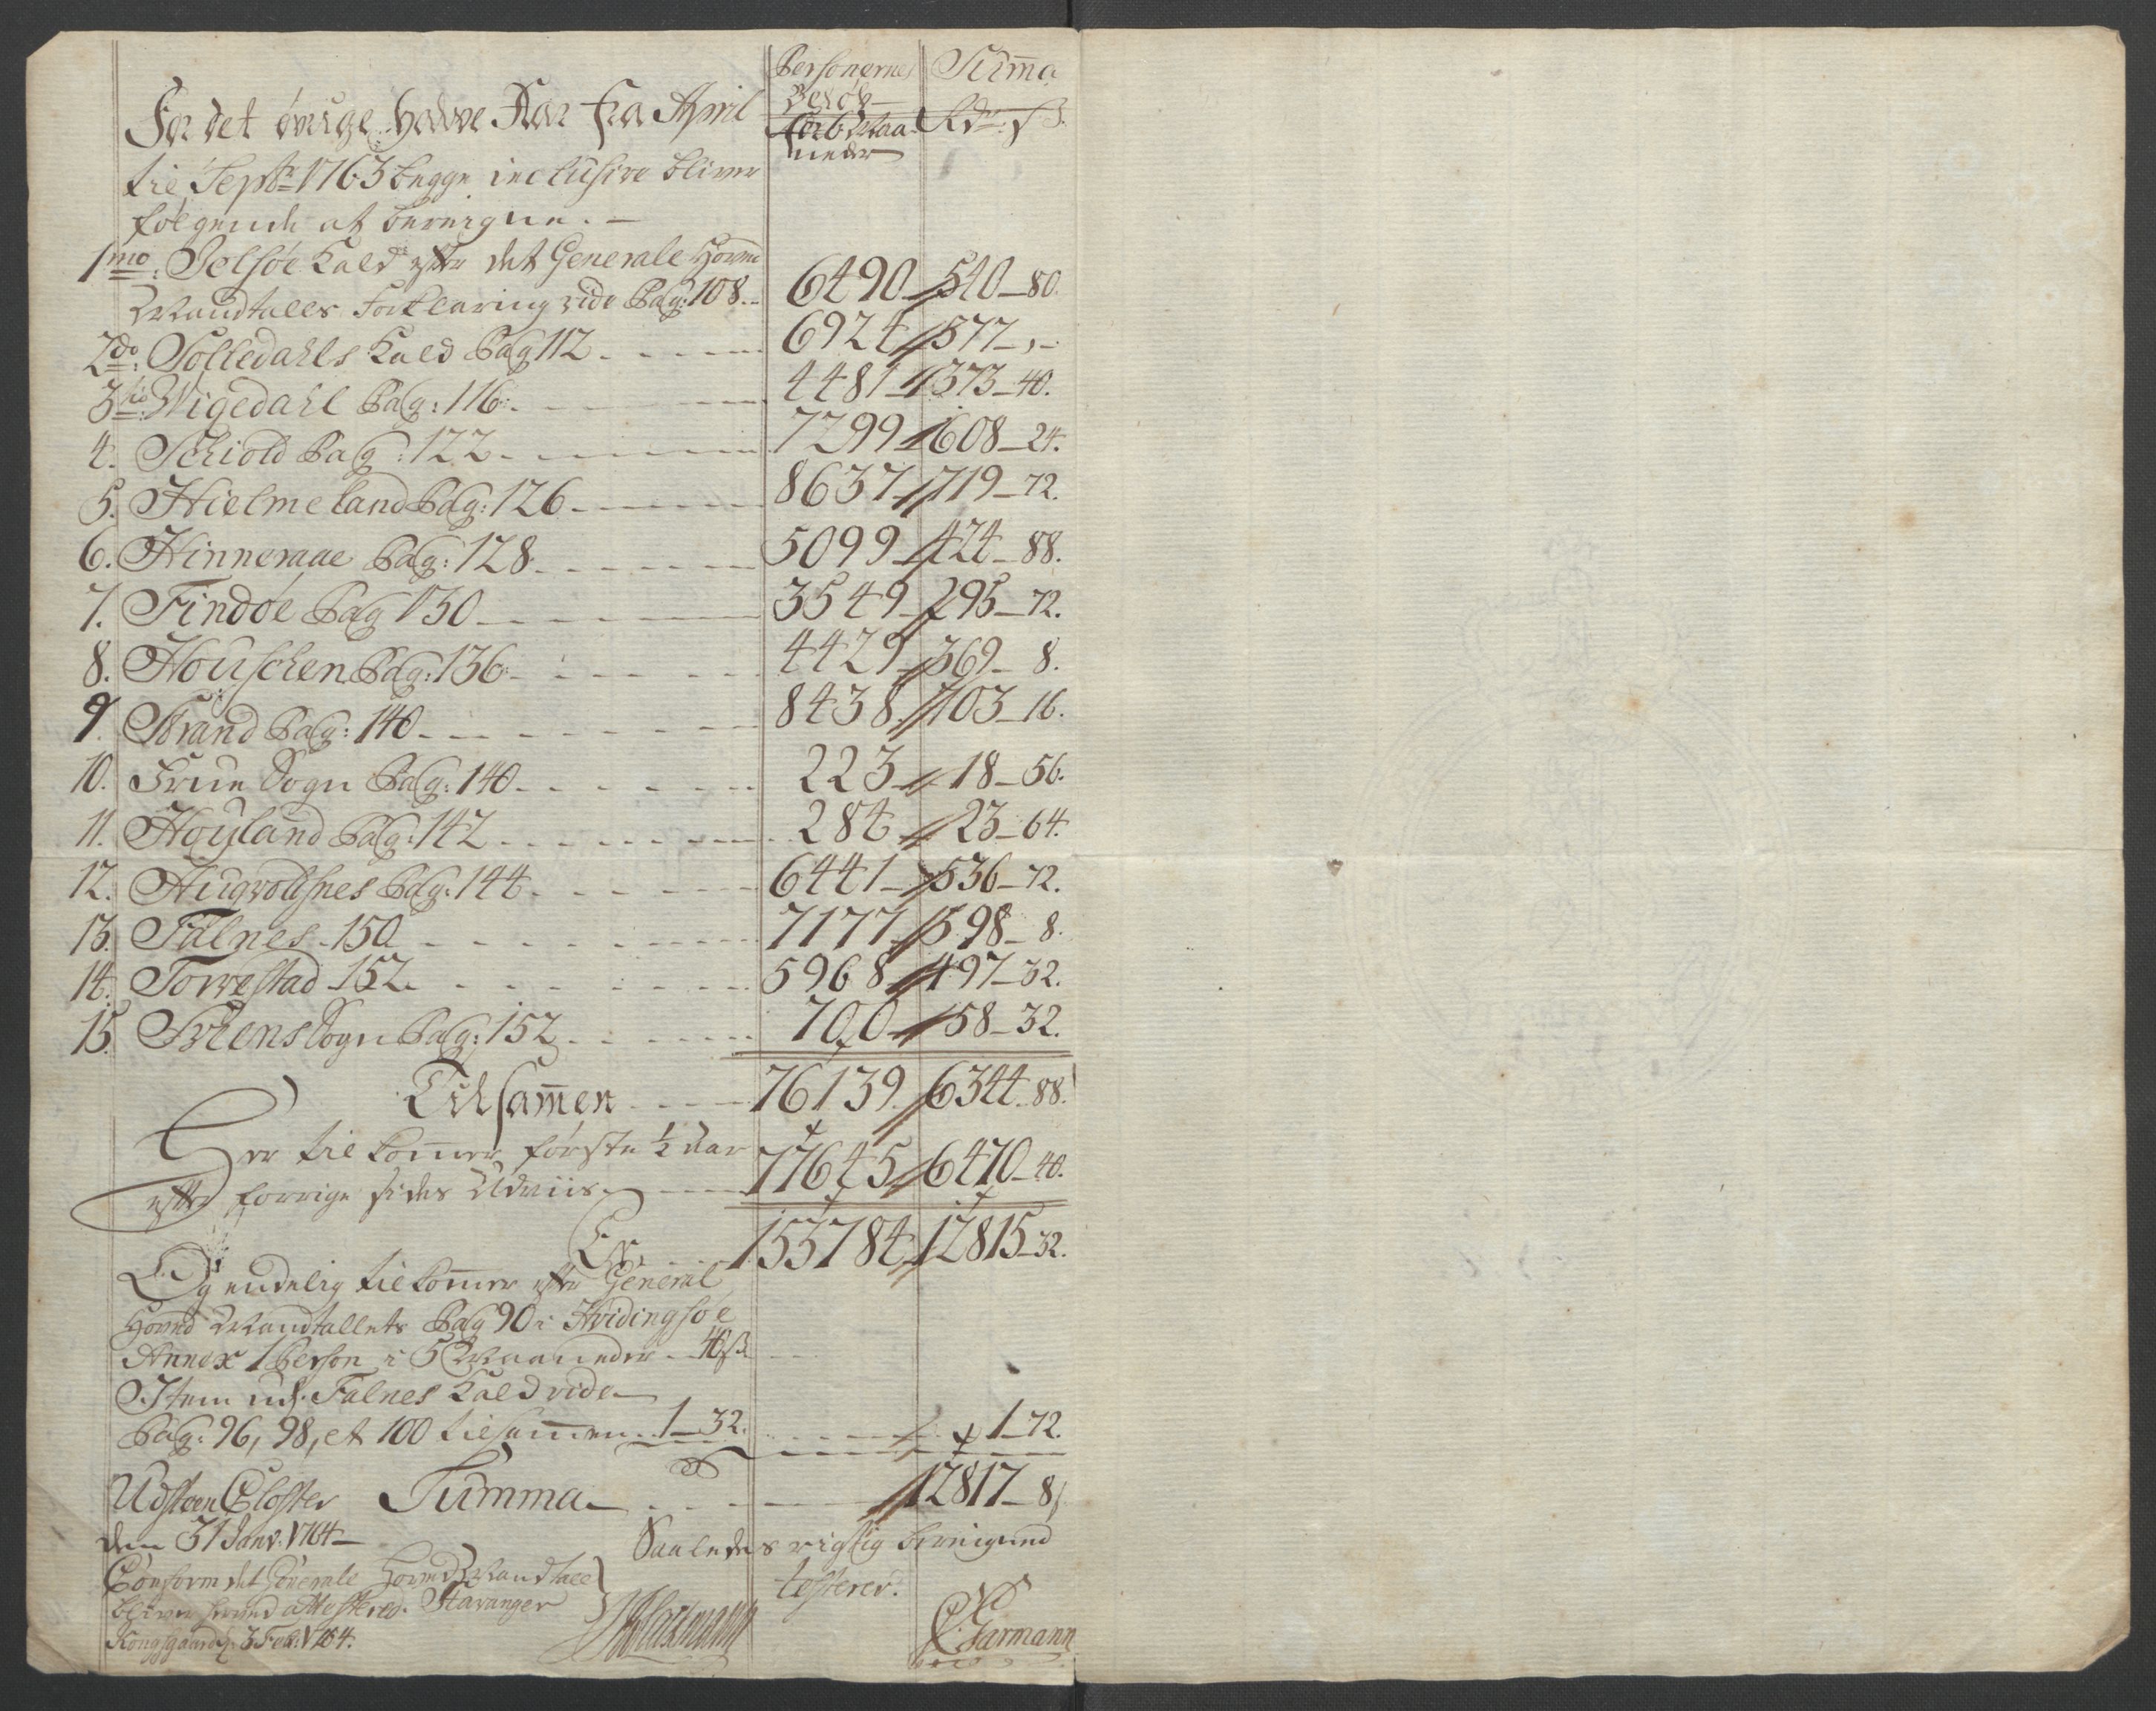 Personernes Summa
Beløb
For det øvrige halve Aar fra April for 6 Maa- Rdr. s
neder
til Septbr 1763 begge inclusive bliver
følgende at beregne. -
1mo. Jelsøe Kald efter det Generale Hoved
Mandtalls Forklaring vide Pag: 108. - 6490 - 540 - 80.
2do: Solledahls Kald Pag 112 - 6924 - 577 - , -
3tio Wigedahl Pag: 116. - 4481 - 373 - 40.
4. Schiold Pag: 122 - 7299 - 608 - 24.
5. Hielmeland Pag: 126 - 8637 - 719 - 72.
6. Hinneraae Pag: 128 - 5099 - 424 - 88.
7. Findøe Pag 130 - 3549 - 295 - 72.
8. Houschen Pag: 136 - 4429 - 369 - 8.
9. Strand Pag: 140 - 8438 - 703 - 16.
10. Frue Sogn Pag: 140 - 223 - 18 - 56.
11. Høyland Pag: 142 - 284 - 23 - 64.
12. Augvoldsnes Pag: 144 - 6441 - 536 - 72.
13. Falnes - 150 - 7177 - 598 - 8.
14. Torvestad 152 - 5968 - 497 - 32.
15. Sviens Sogn Pag: 152 - 700 - 58 - 32.
Tilsam̅en - 76139 - 6344 - 88.
Her til kom̅er første 1/2 Aar
efter forrige sides Udviis - 77645 - 6470 - 40.
Er - 153784 - 12815 - 32.
Og endelig tilkom̅er efter General
Hoved Mandtallets Pag 90 i Hvidingsøe
Annex 1 Person i 5 Maaneder - 40 s
Item udi Falnes Kald vide
Pag: 96, 98, et 100 tilsam̅en - 1 - 32. - 1 - 72.
Udsteen Closter Summa - 12817 - 8 s
den 31 Janv: 1764 - Saaledes rigtig beregned
Conform det Generale Hoved Mandtall testerer.
bliver herved attesteret. Stavanger
Kongsgaard d. 3 Feb: 1764. Garmann